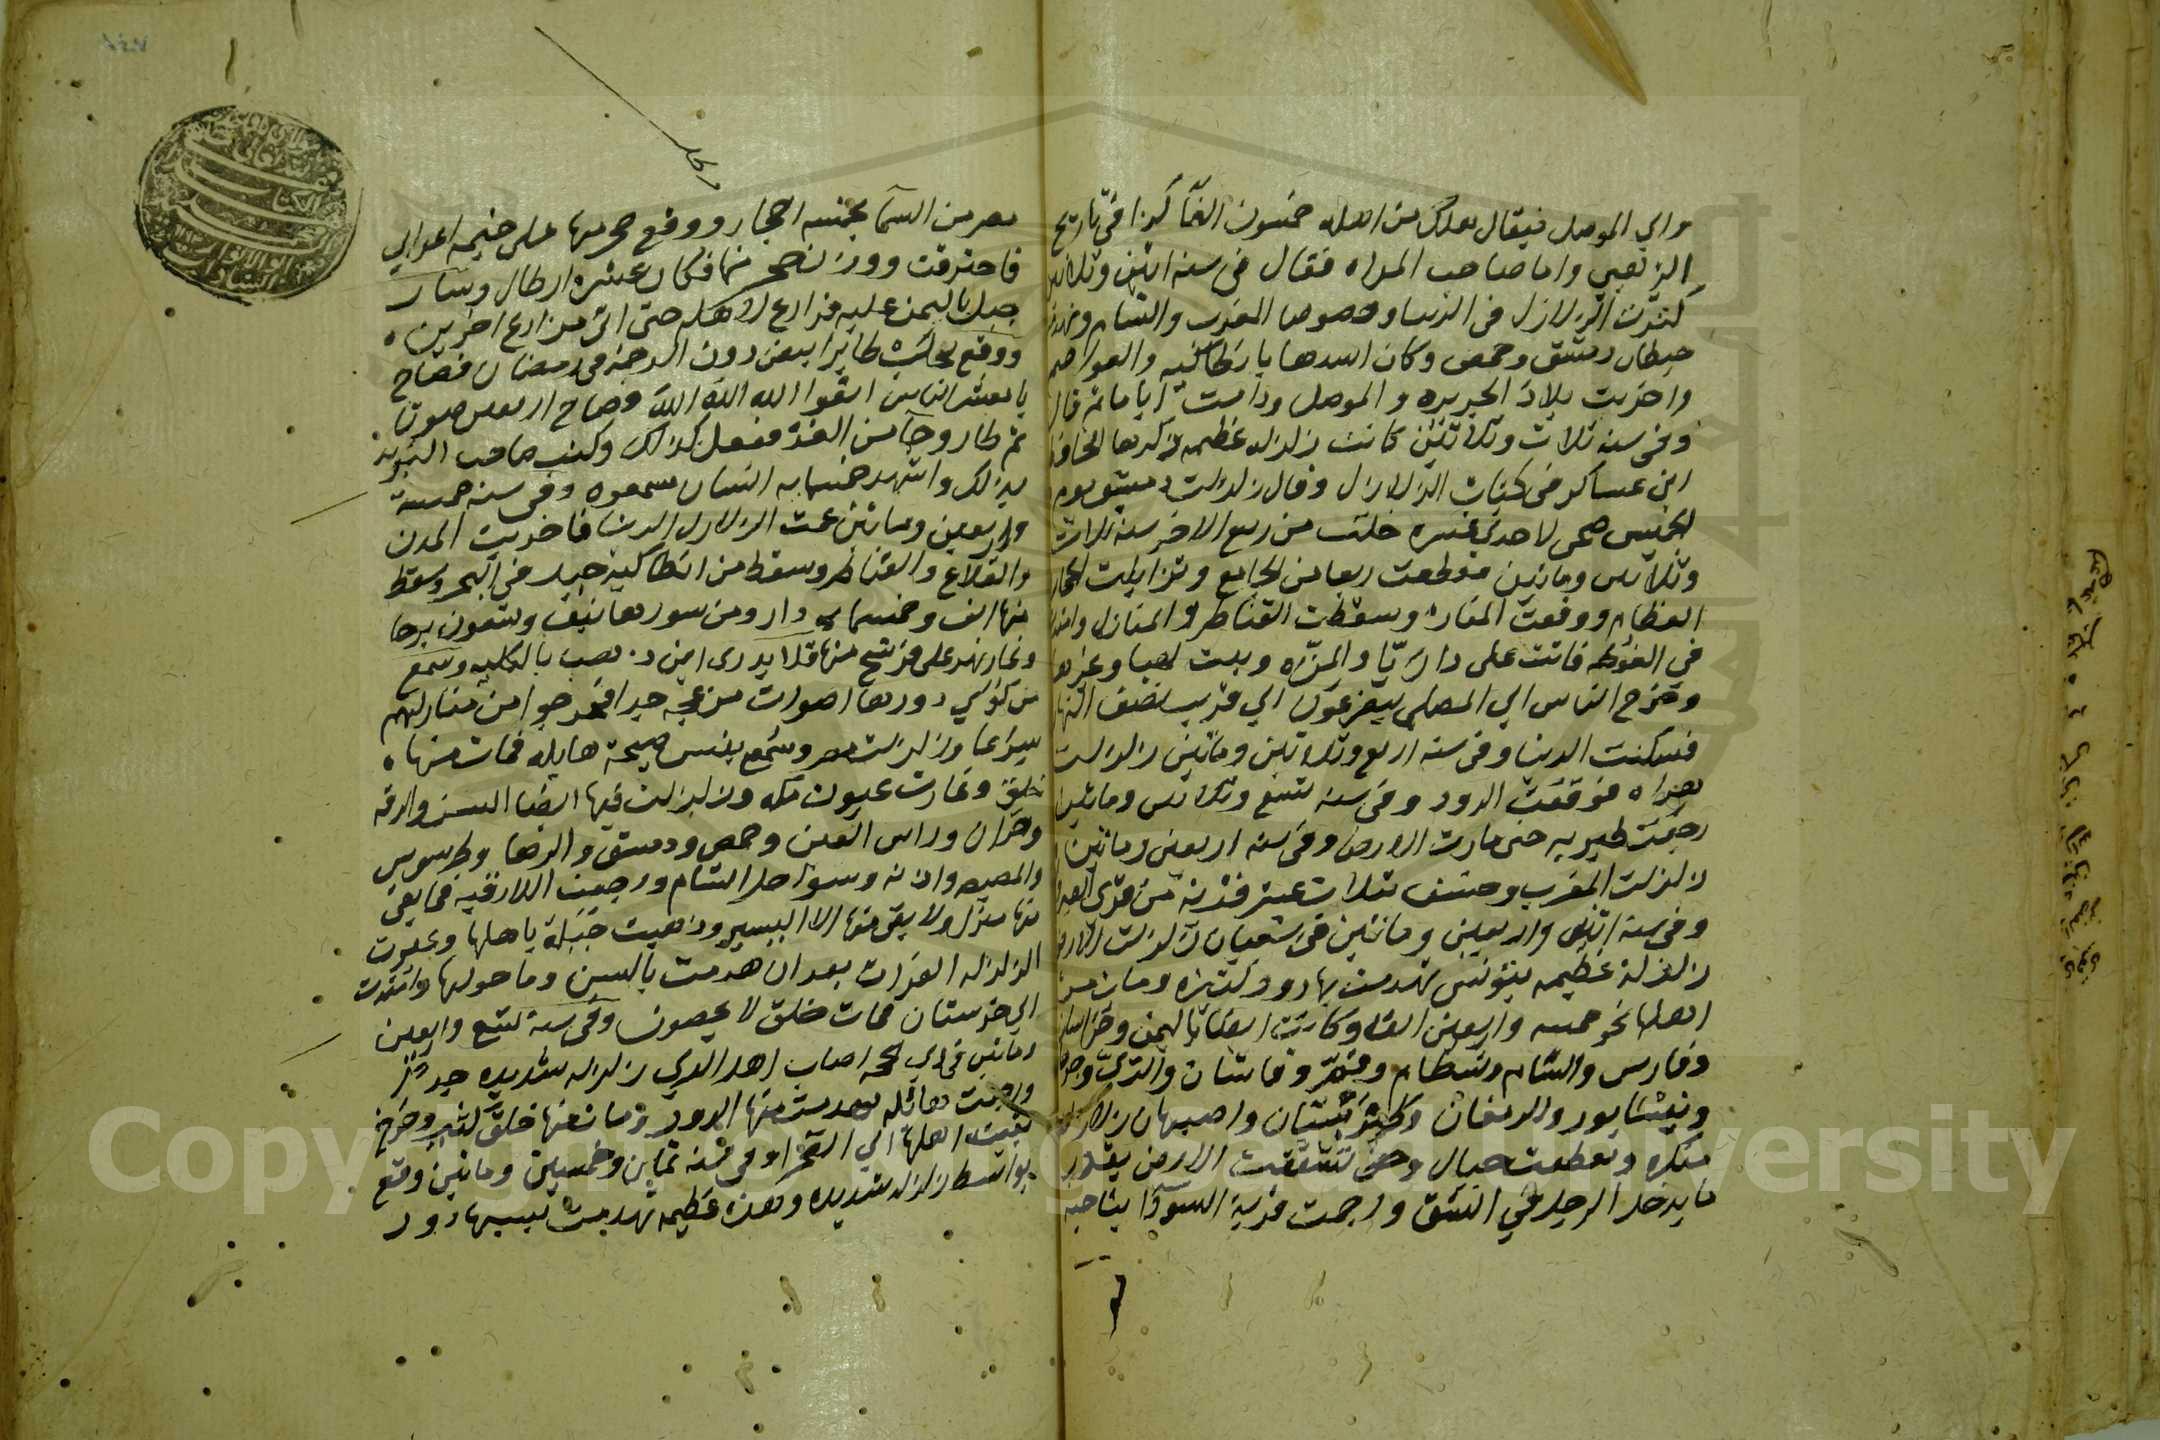 والي الموصل فيقال هلك من اهله خمسون الفا كذا في تاريخ
الذهبي واما صاحب المراه فقال في سنه اثنين وثلاثين
كثرت الزلازل في الدنيا وخصوصا المغرب والشام وهدمت
حيطان دمشق وحمص وكان اشدها بانطاكيه والعواصم
واخربت بلاد الجزيره والموصل ودامت اياما ثم قال
وفي سنه ثلاث وثلاثين كانت زلزله عظيمه ذكرها الحافظ
ابن عساكر في كتاب الزلازل وقال زلزلت دمشق يوم
الخميس ضحى لاحدى عشره خلت من ربيع الاخر سنه ثلاث
وثلاثين ومائتين فقطعت ربعا من الجامع وتزايلت الحجار
العظام ووقعت المناره وسقطت القناطر والمنازل وامتدت
في الغوطه فاتت على داريّا والمزّه وبيت لهيا وغيرها
وخرج الناس الي المصلى يتضرعون الي قريب نصف النهار
فسكنت الدنيا وفي سنه اربع وثلاثين ومائتين زلزلت
هراه فوقعت الدور وفي سنه تسع وثلاثين ومائتين
رجفت طبريه حتى مادت الارض وفي سنه اربعين ومائتين
زلزلت المغرب وخسف ثلاث عشر قريه من قرى القيروان
وفي سنه اثنين واربعين ومائتين في شعبان زلزلت الارض
زلزلة عظيمه بتونس تهدمت بها دور كثيره ومات من
اهلها نحو خمسه واربعين الفا وكانت ايضا باليمن وخراسان
وفارس والشام وبسطام وقم وقاشان والري وجرجان
ونيشابور والدمغان وطبرستان واصبهان زلازل
منكره وتقطعت جبال وحتى تشققت الارض بقدر
ما يدخل الرجل في الشق ورجمت قرية السويدا بناحيه
مصر من السما بخمسه احجار ووقع حجر منها على خيمه اعرابي
فاحترقت ووزن حجر منها فكان عشره ارطال وسار
جبل باليمن عليه مزارع لاهله حتى اتى مزارع اخرين
ووقع بحلب طاير ابيض دون الرخمة في رمضان فصاح
يا معشر الناس اتقوا الله الله الله وصاح اربعين صوتا
ثم طار وجآ من الغد ففعل كذلك وكتب صاحب البريد
بذلك واشهد خمسمايه انسان سمعوه وفي سنه خمسة
واربعين ومائتين عمت الزلازل الدنيا فاخربت المدن
والقلاع والقناطر وسقط من انطاكية جبل في البحر وسقط
منها الف وخمسمايه دار ومن سورها نيف وتسعون برجا
وغار نهر على فرسخ منها فلا يدرى اين ذهب بالكليه وسمع
من كوى دورها اصوات مزعجه جدا فخرجوا من منازلهم
سراعا وزلزلت مصر وسمع بتنيس صيحة هايله فمات منها
خلق وغارت عيون مكه وزلزلت فيها ايضا السن والرقه
وحران وراس العين وحمص ودمشق والرها وطرسوس
والمصيصه واذنه وسواحل الشام ورجفت اللاذقيه فما بقي
منها منزل ولا بقي منها الا اليسير وذهبت جبلة باهلها وعبرت
الزلزله الفرات بعد ان هدمت بالسن وما حولها وامتدت
الي خرستان فمات خلق لا يحصون وفي سنة تسع واربعين
ومائتين في ذي الحجه اصاب اهل الري زلزله شديده جدا
ورجفت هائله تهدمت منها الدور ومات منها خلق كثير وخرج
بقية اهلها الي الصحرا وفي سنه ثمان وخمسين ومائتين وقع
بواسط زلزله شديده وهده عظيمه تهدمت بسببها دور
Copyright © King Saud University